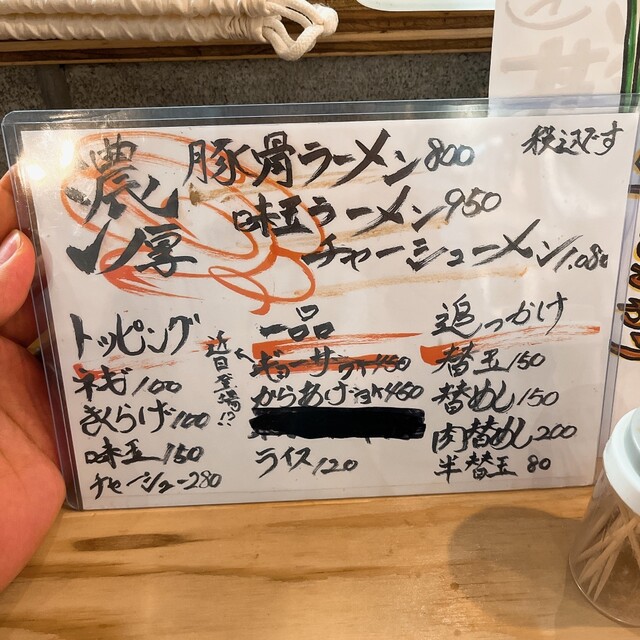 濃厚
豚骨ラーメン800
味玉ラーメン950
チャーシューメン1.080
税込です
トッピング
ネギ100
きくらげ100
味玉150
チャーシュー280
近日登場!?
一品
ギョーサ 5ヶ450
からあげ 3ヶ460
ライス120
追っかけ
替玉150
替めし150
肉替めし200
半替玉 80